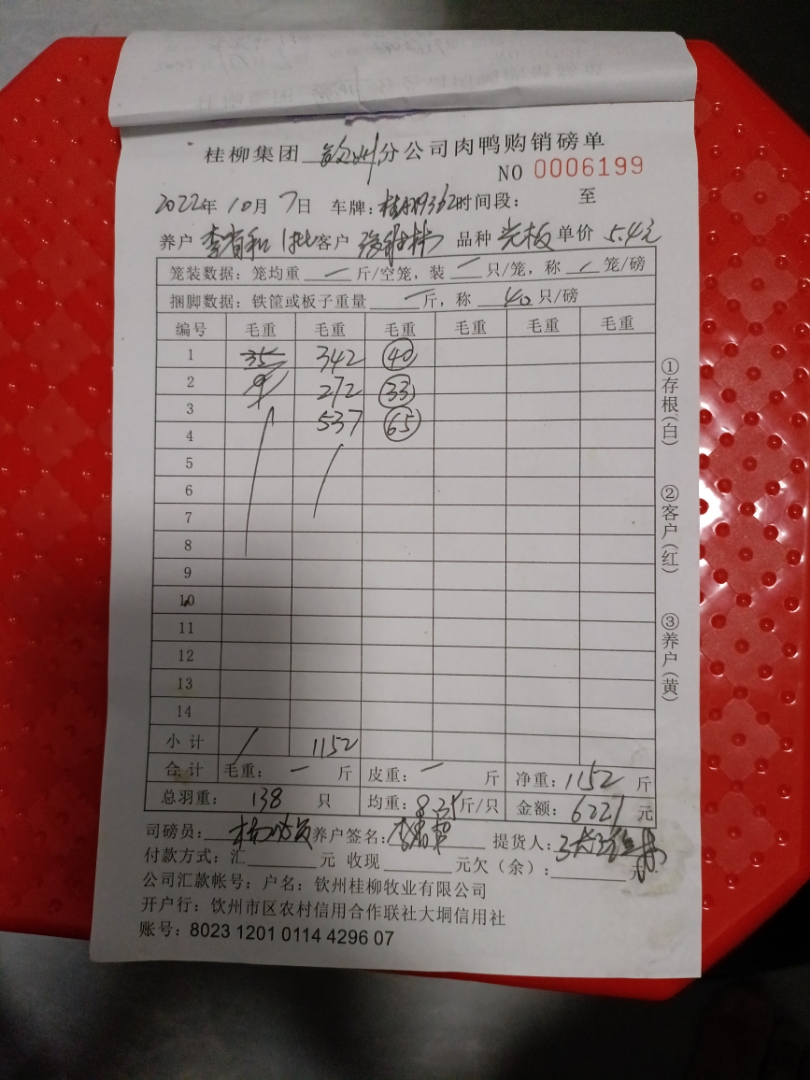 桂柳集团 钦州 分公司肉鸭购销磅单
NO 0006199
2022年10月7日 车牌: 时间段: 至
养户 李 和 1批 客户 品种 光板 单价 5.4元
笼装数据: 笼均重 一 斤/空笼, 装 一 只/笼, 称 / 笼/磅
捆脚数据: 铁筐或板子重量 一 斤, 称 40 只/磅
编号 毛重 毛重 毛重 毛重 毛重 毛重
1 35 342 40
2 272 33
3 537 65
4
5
6
7
8
9
10
11
12
13
14
小计 / 1152
合计 毛重: 一 斤 皮重: 一 斤 净重: 1152 斤
总羽重: 138 只 均重: 8.35 斤/只 金额: 6221 元
司磅员: 养户签名: 提货人:
付款方式: 汇 元 收现 元欠(余): 元
公司汇款帐号: 户名: 钦州桂柳牧业有限公司
开户行: 钦州市区农村信用合作联社大垌信用社
账号: 8023 1201 0114 4296 07
①存根(白)
②客户(红)
③养户(黄)